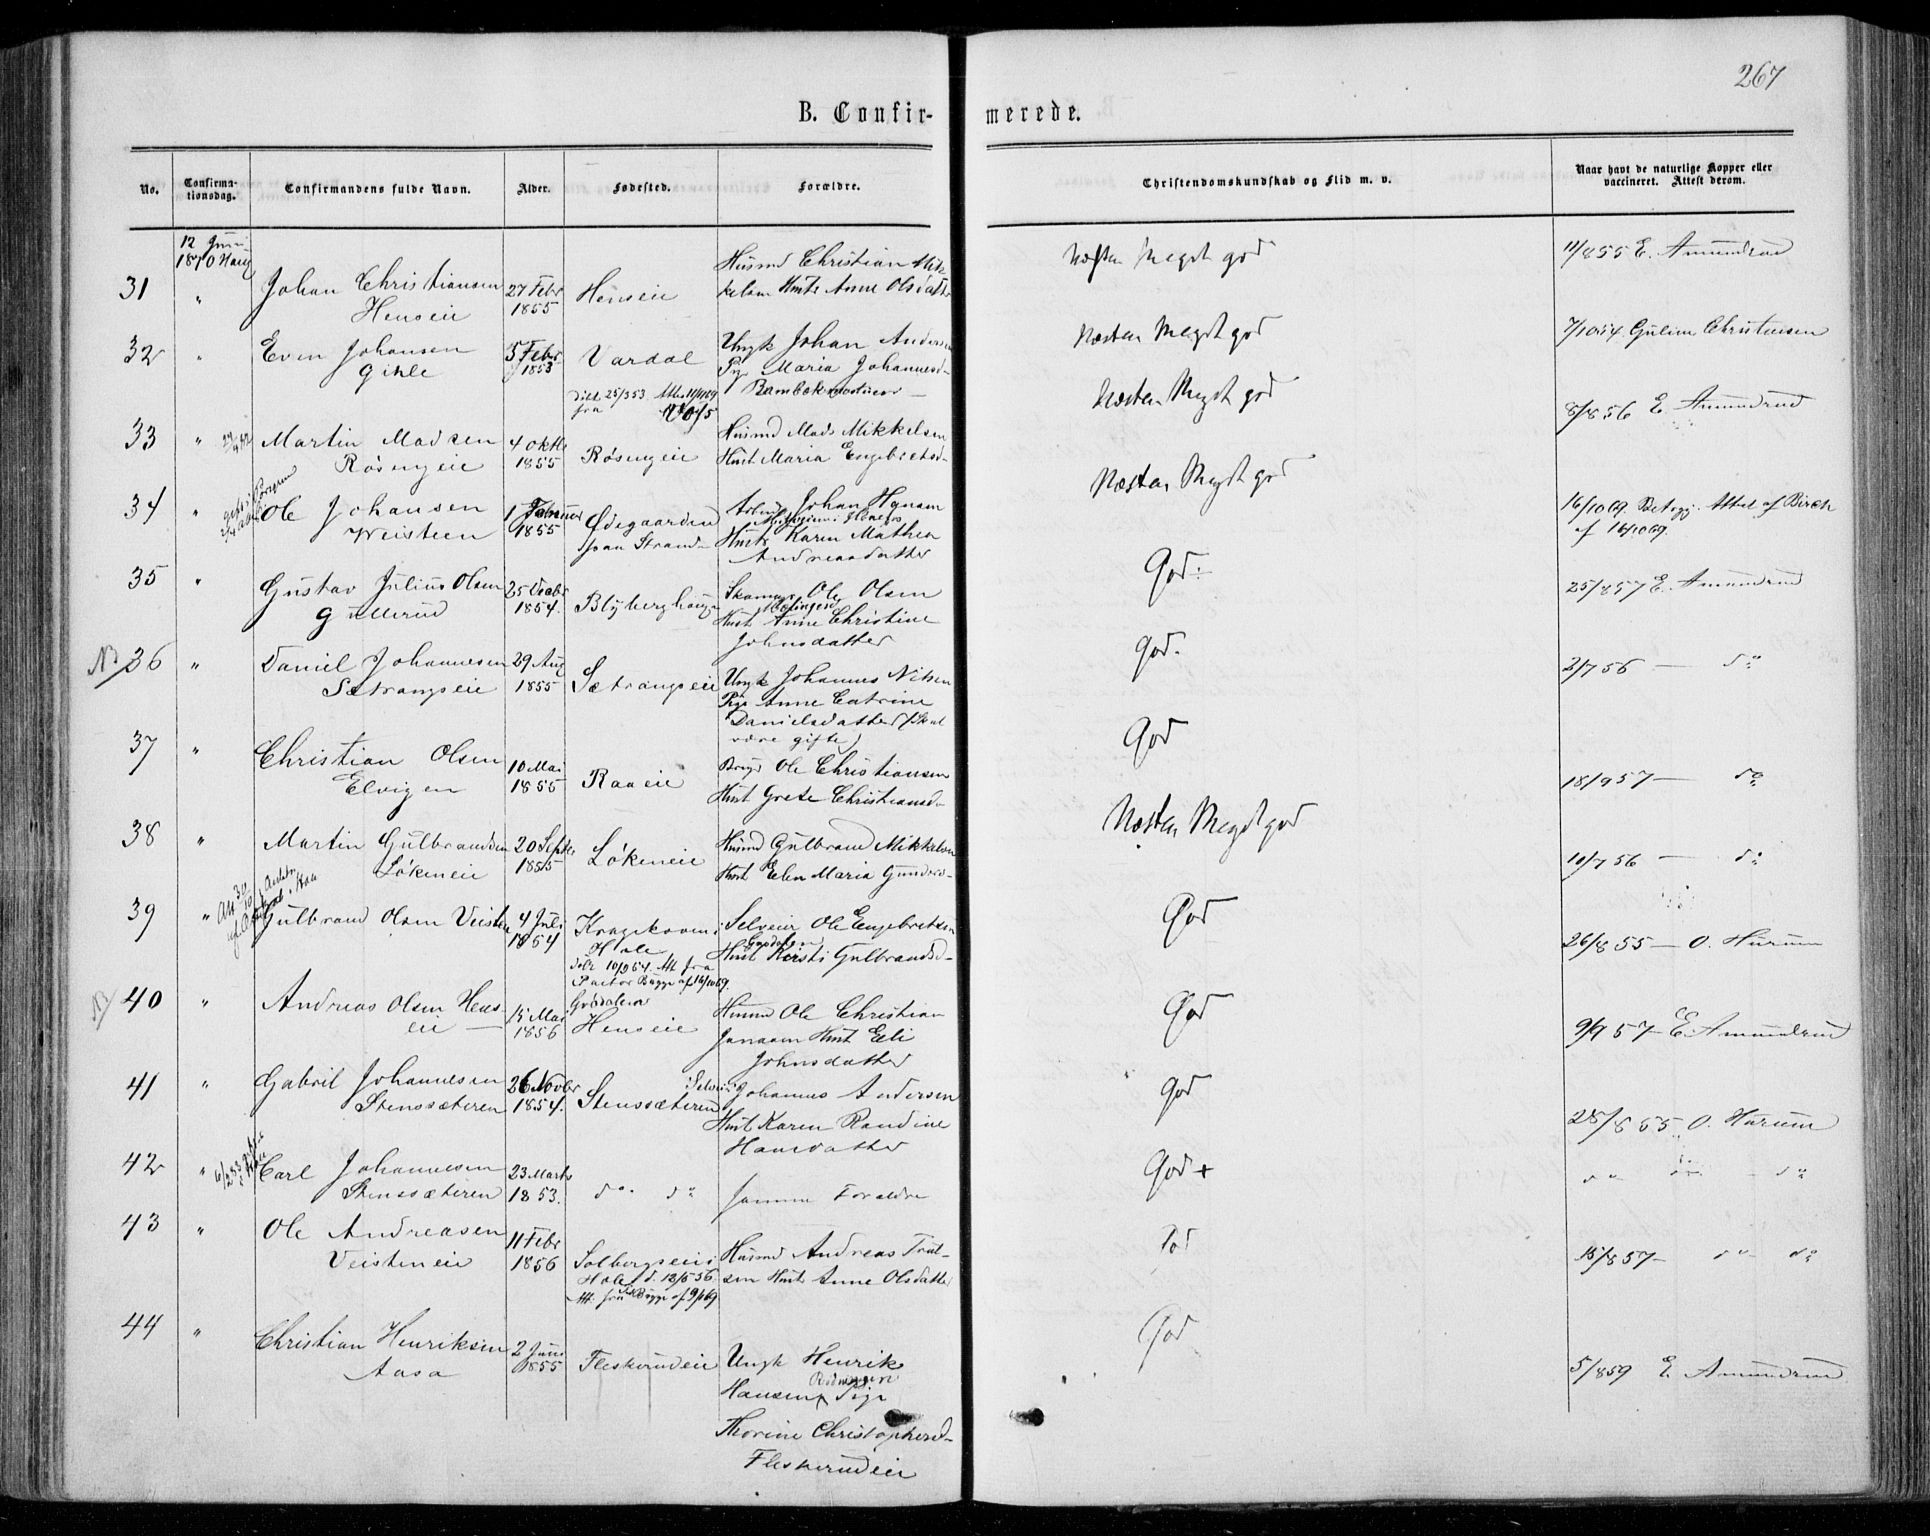 267
B. Confir-
merede.
No.
Confirma-
tionsdag.
Confirmandens fulde Navn.
Alder.
Fødested.
Forældre.
Christendomskundskab og Flid m. v.
Naar havt de naturlige Kopper eller
vaccineret. Attest derom.
12 Juni
1870 Haug
31 " Johan Christiansen
Henseie
27 Febr
1855
Henseie
Husmd Christian Mik-
kelsen Hust. Anne Olsdatter
Næsten Meget god
11/8 55 E. Amundrud
32 " Even Johansen
Gihle
5 Febr
1853
Vardal
døbt 25/3 53. Att. 11/11 69
fra
Ungk Johan Andersen
Pig Maria Johannesd-
Næsten Meget god
7/10 54 Christensen
33 " Martin Madsen
Røsengeie
4 Oktbr
1855
Røsengeie
Husmd Mads Mikkelsen
Hust Maria Engebretsd-
Næsten Meget god
8/8 56 E. Amundrud
34 " Ole Johansen
Weisteen
1 Februar
1855
Ødegaarden
paa Strand
Johan Hansen
Hust Karen Mathea
Andreasdatter
Næsten Meget god
16/10 69. Attest af Birch
af 16/10 69.
35 " Gustav Julius Olsen
Gullerud
25 Decbr
1854.
Blyberghaugen
Skomager Ole Olsen
Hust Anne Christine
Johnsdatter
God-
25/8 57 E. Amundrud
36 " Daniel Johannesen
Sætrangseie
29 Aug
1855
Sætrangseie
Ungk Johannes Nilsen
Pige Anne Catrine
Danielsdatter (skal
være gifte)
God-
2/7 56 — do
37 " Christian Olsen
Elvigen
10 Mai
1855
Raaeie
Ole Christiansen
Hust Grete Christiansd-
God
18/9 57 — do
38 " Martin Gulbrandsen
Løkeneie
20 Septbr
1855
Løkeneie
Husmd Gulbrand Mikkelsen
Hust Elen Maria Gundersd-
Næsten Meget god
10/7 56 — do
39 " Gulbrand Olsen Veisten
4 Juli
1854
i
Hole
døbt 10/9 54. Att fra
Pastor Bugge af 16/10 69.
Selveier Ole Engebretsen
Hust Kirsti Gulbrandsd-
God
26/8 55 — O. Hurum
40 " Andreas Olsen Hens-
eie —
15 Mai
1856
Henseie
Husmd Ole Christian
Jonasen Hust Eli
Johnsdatter
God
9/9 57 — E. Amundrud
41 " Gabriel Johannesen
Stenssæteren
26 Novbr
1854.
Stenssæteren
Selveier Johannes Andersen
Hust Karen Randine
Hansdatter
God
28/8 55 O. Hurum
42 " Carl Johannesen
Stenssæteren
23 Marts
1853.
do. do
Samme Forældre
God +
do do - do
43 " Ole Andreasen
Veisteneie
11 Febr
1856
Solbergseie i
Hole d. 12/5 56
Att. fra Bugge af 9/1 69
Husmd Andreas Trul-
sen Hust Anne Olsdatter
God
15/8 57 — do — do
44 " Christian Henriksen
Aasa
2 Juni
1855
Fleskerudeie
Ungk Henrik
Hansen Pige
Thorine Christophersd-
Fleskerudeie
God
5/8 59 E. Amundrud